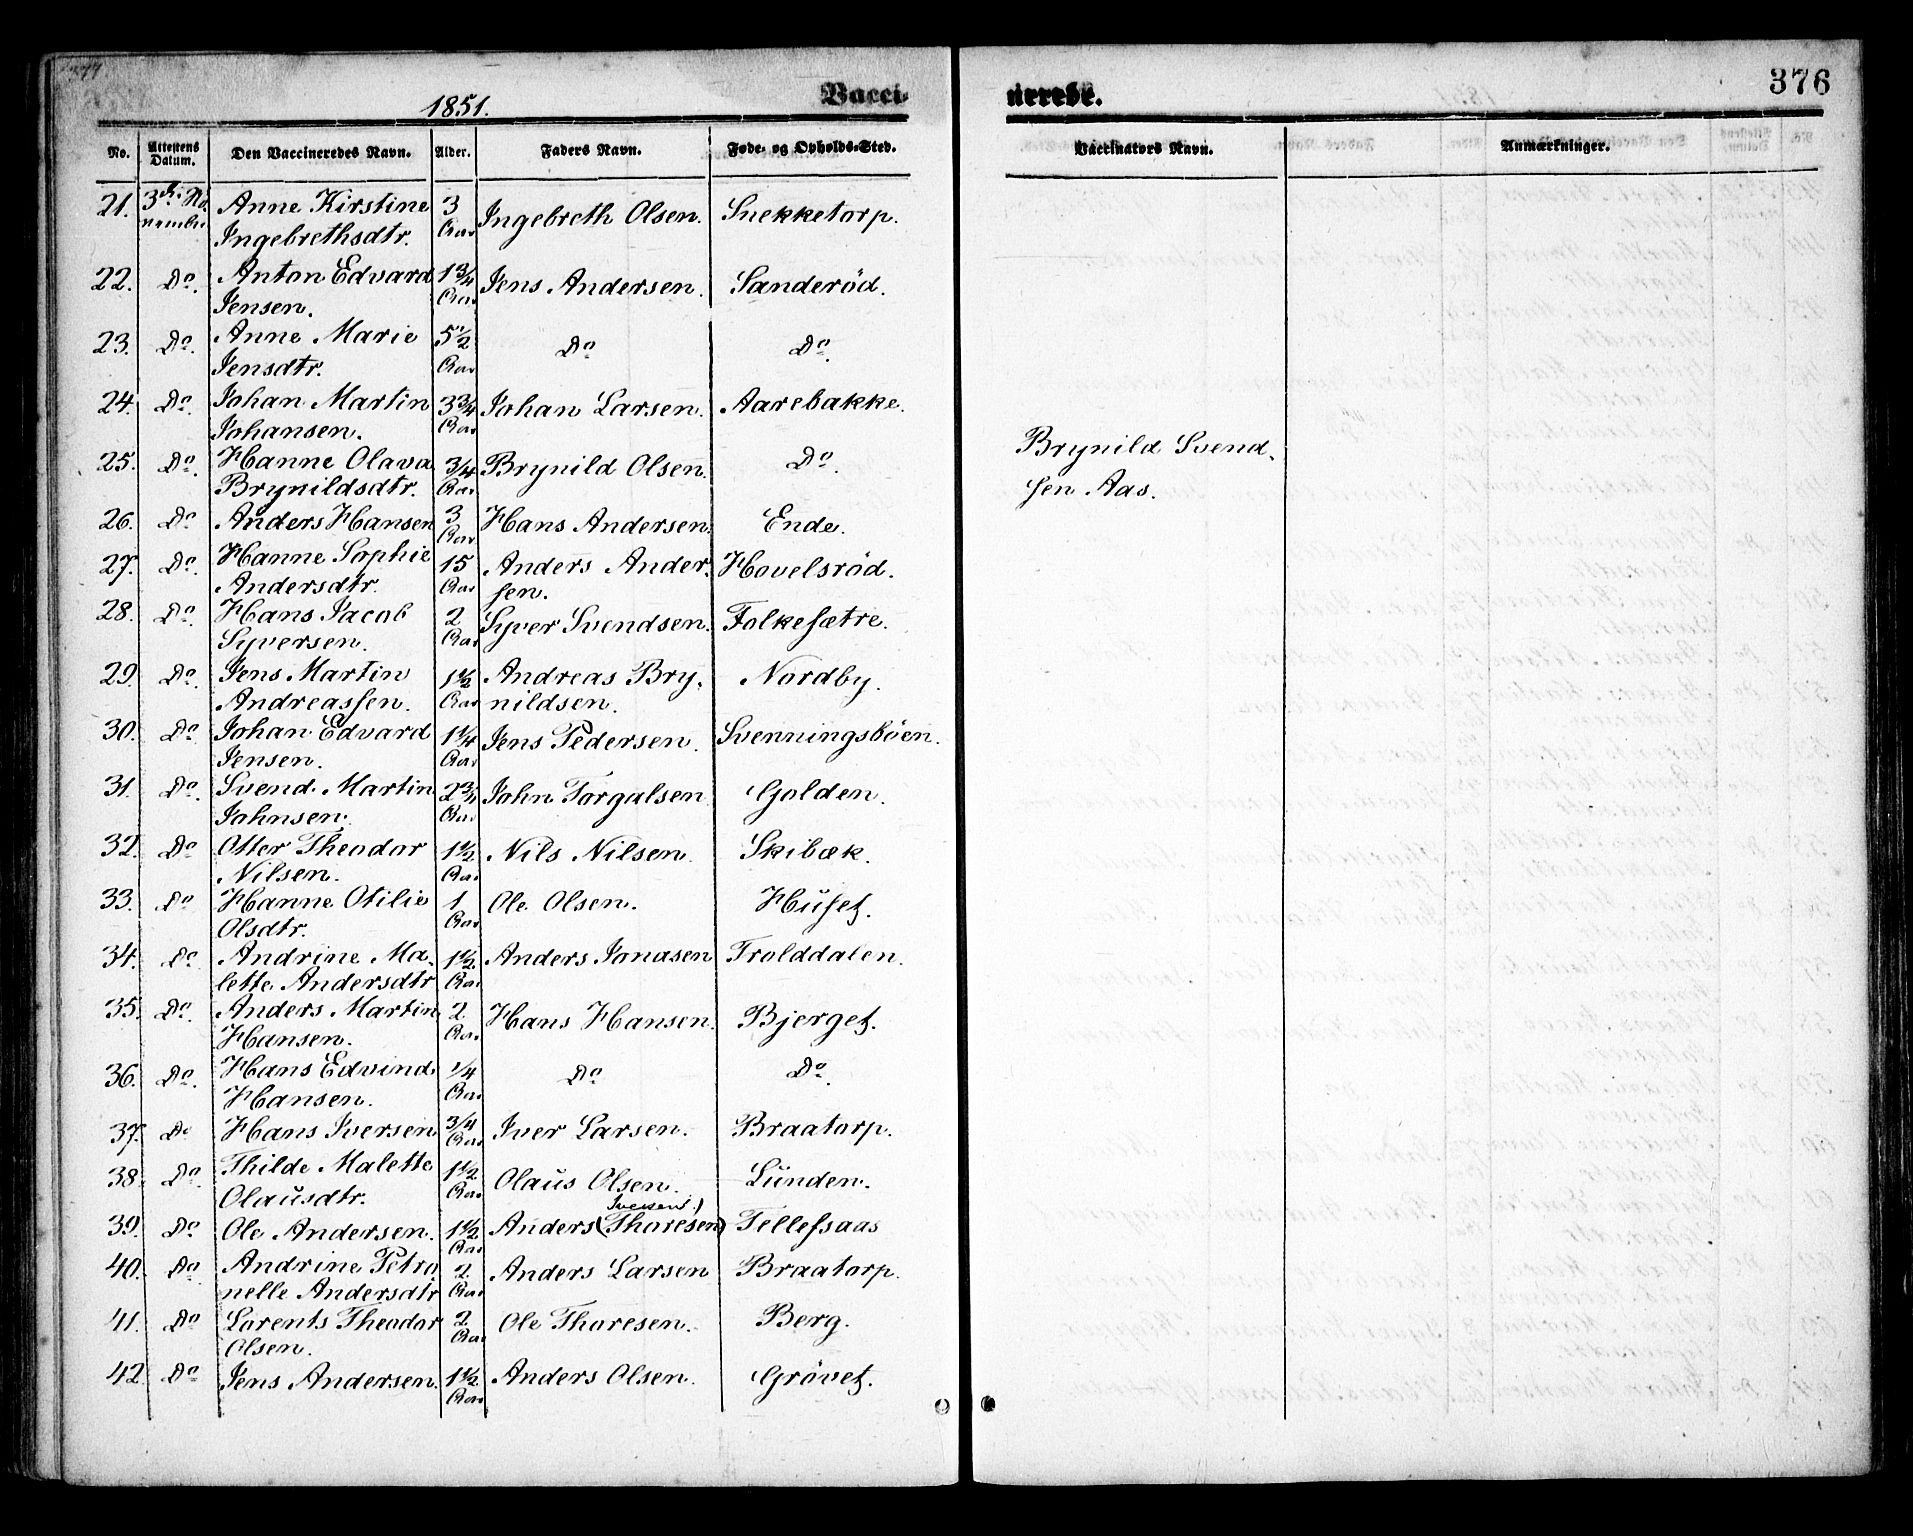 377
1851.
Vacci-
No. Attestens Datum. Den Vaccineredes Navn. Alder. Faders Navn. Føde- og Opholds-Sted.
21. 3die No- Anne Kirstine 3 Ingebreth Olsen. Snekketorp.
vember Ingebrethsdtr. Aar
22. Do. Anton Edvard 1 3/4 Jens Andersen. Sanderöd.
Jensen. Aar
23. Do. Anne Marie 5 1/2 Do Do.
Jensdtr. Aar
24. Do. Johan Martin 3 3/4 Johan Larsen. Aarebakke.
Johansen. Aar
25. Do. Hanne Olava 3/4 Brynild Olsen. Do.
Brynildsdtr. Aar
26. Do. Anders Hansen 3 Hans Andersen. Ende.
Aar
27. Do. Hanne Sophie 15 Anders Ander- Hovelsröd.
Andersdtr. Aar sen.
28. Do. Hans Jacob 2 Syver Svendsen. Folkesætre.
Syversen. Aar
29. Do. Jens Martin 1 1/2 Andreas Bry- Nordby.
Andreassen. Aar nildsen.
30. Do. Johan Edvard 1 1/4 Jens Pedersen. Svenningsböen.
Jensen. Aar
31. Do. Svend Martin 2 3/4 John Torgalsen Golden.
Johnsen. Aar
32. Do Otter Theodor 1 1/2 Nils Nilsen. Skibæk.
Nilsen. Aar
33. Do Hanne Otilie 1 Ole Olsen. Huset.
Olsdtr. Aar
34. Do. Andrine Ma- 1 1/2 Anders Jonasen Trolddalen.
lette Andersdtr Aar
35. Do. Anders Martin 2 Hans Hansen. Bjerget.
Hansen. Aar
36. Do. Hans Edvind 1/4 Do Do.
Hansen. Aar
37. Do Hans Iversen 3/4 Iver Larsen. Braatorp.
Aar
38. Do. Thilde Malette 1 1/2 Olaus Olsen. Lunden.
Olausdtr. Aar
Iversen.)
39. Do Ole Andersen. 1 1/2 Anders (Thoresen) Tellefsaas
Aar
40. Do Andrine Petro 2 Anders Larsen Braatorp.
nelle Andersdtr Aar
41. Do Lorents Theodor 2 Ole Thoresen. Berg.
Olsen. Aar
42. Do Jens Andersen. 1 1/2 Anders Olsen. Grövet.
Aar
376
nerede.
Vaccinators Navn. Anmærkninger.
Brynild Svend-
sen Aas.